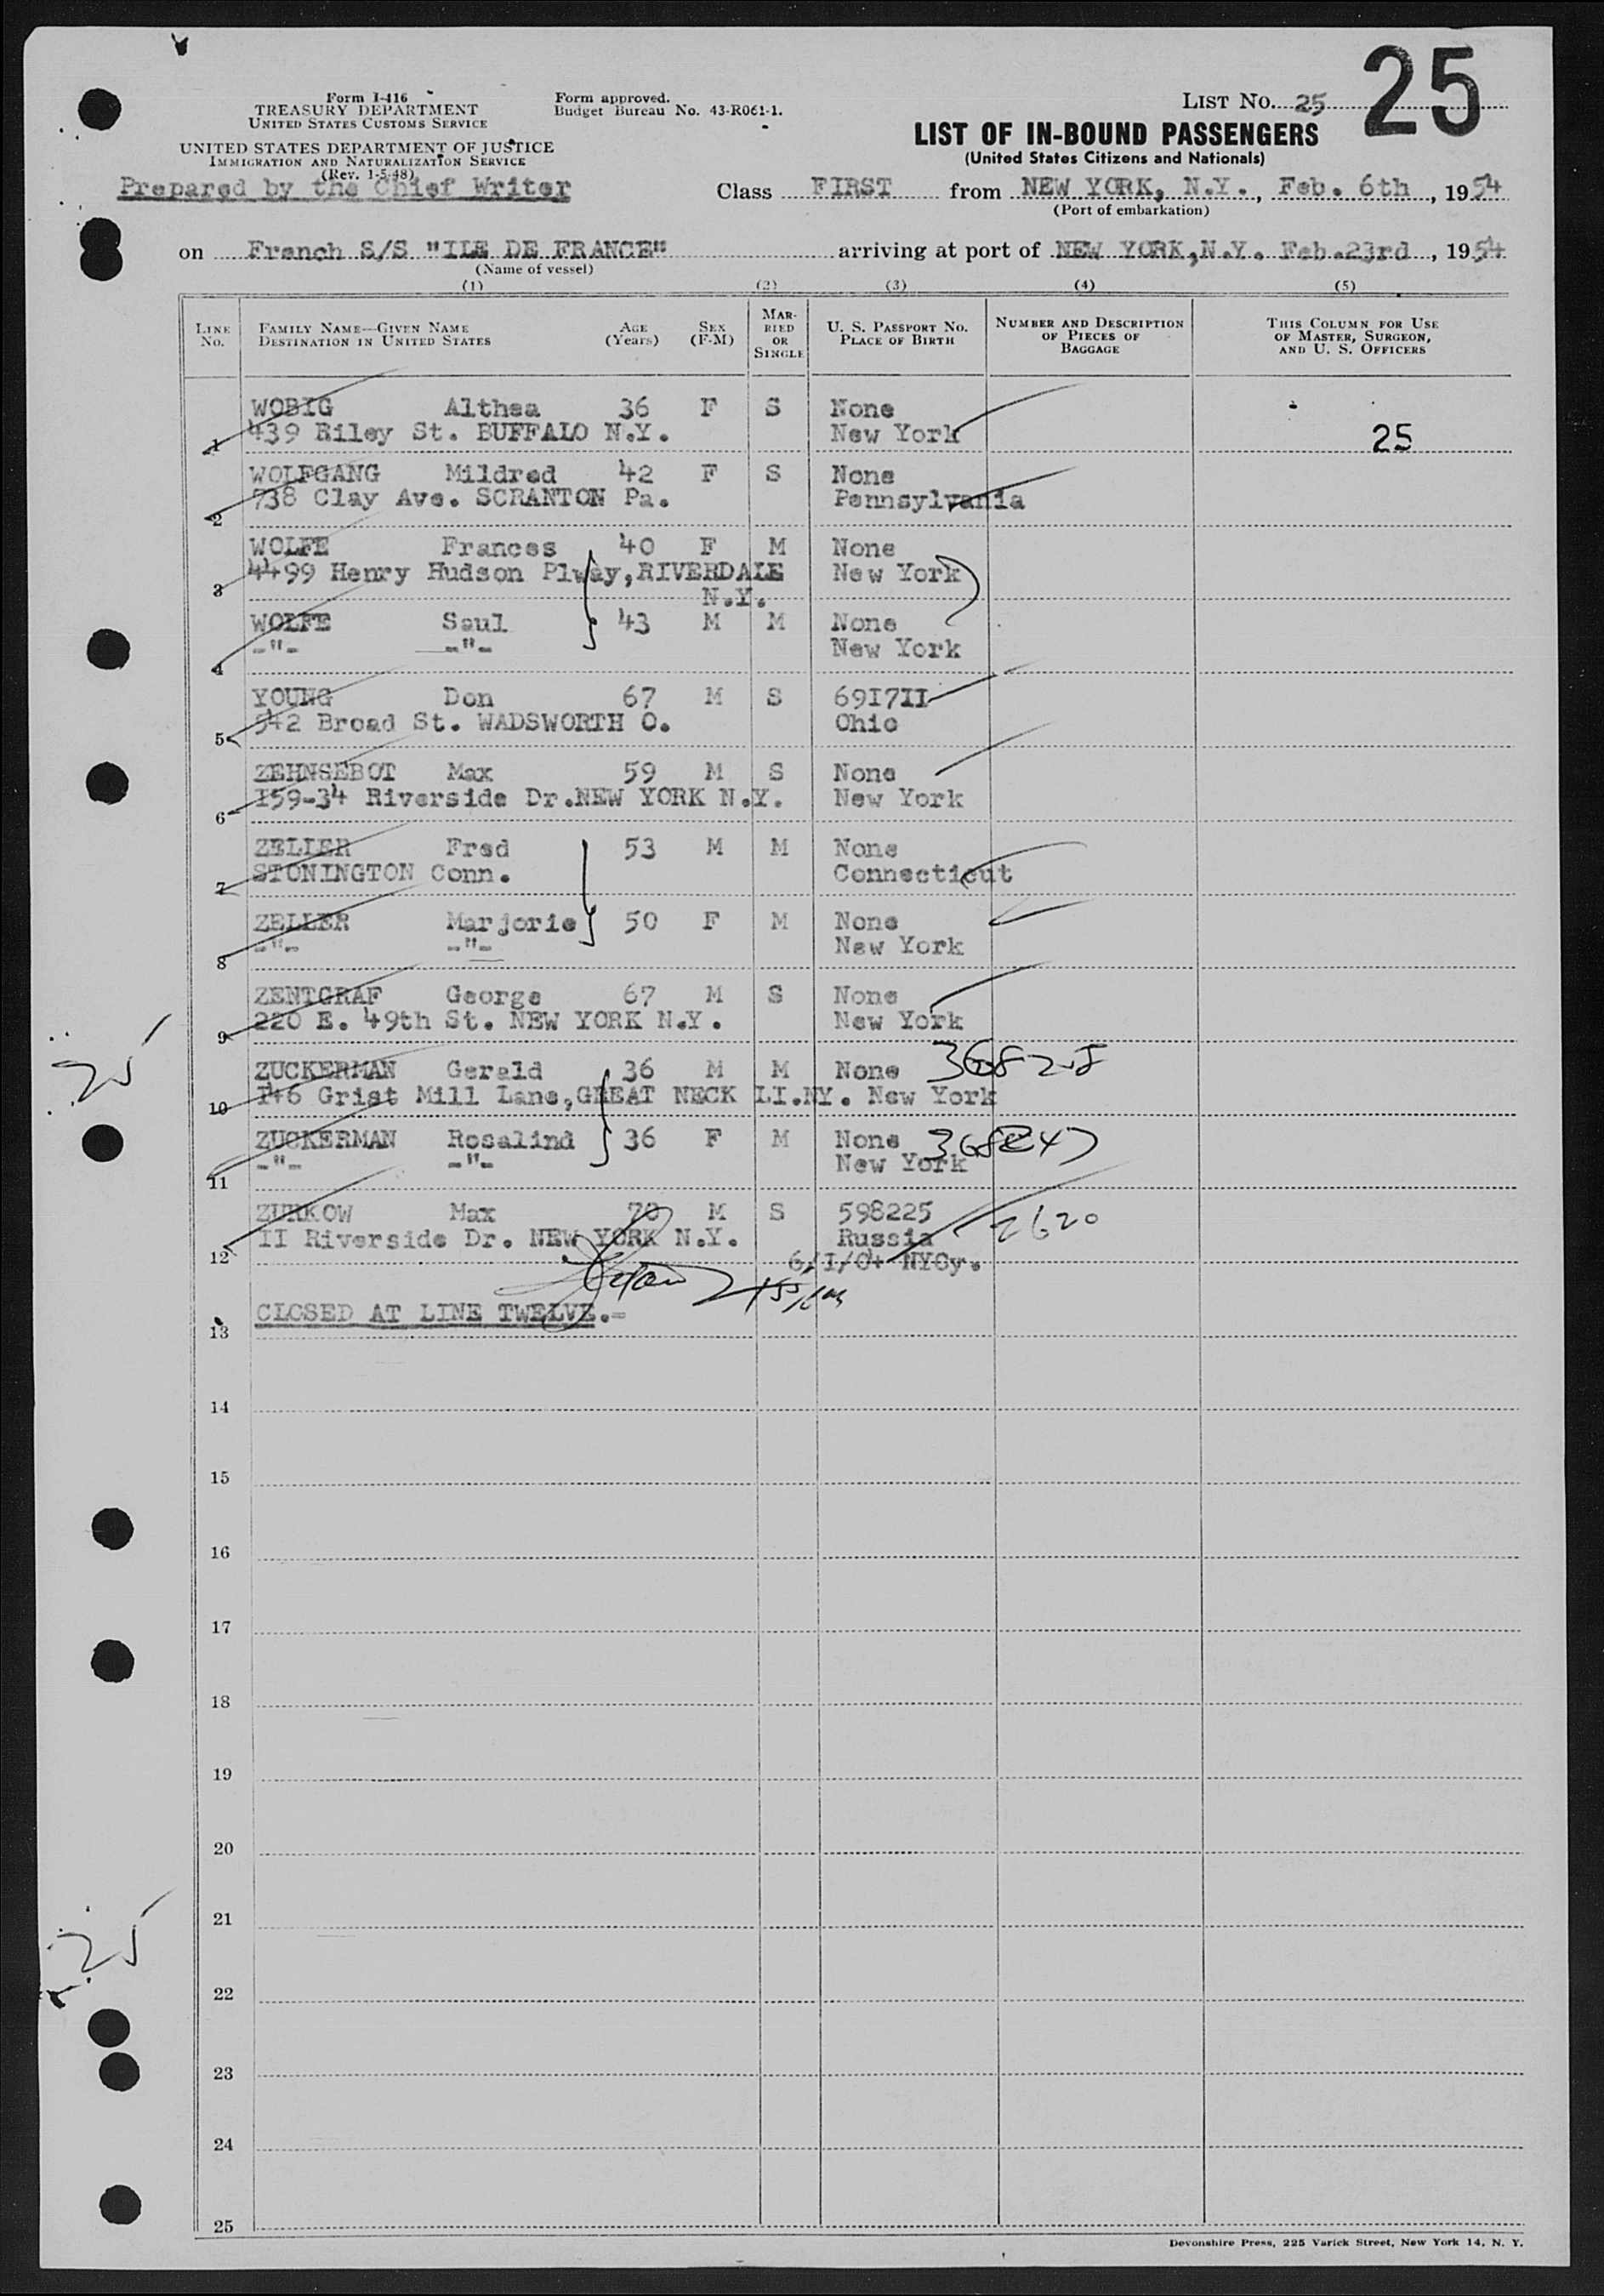 25
Form I-416
TREASURY DEPARTMENT
UNITED STATES CUSTOMS SERVICE
Form approved.
Budget Bureau No. 43-R061-1.
LIST NO. 25
LIST OF IN-BOUND PASSENGERS
(United States Citizens and Nationals)
UNITED STATES DEPARTMENT OF JUSTICE
IMMIGRATION AND NATURALIZATION SERVICE
(Rev. 1-5-48)
Prepared by the Chief Writer
Class FIRST from NEW YORK, N.Y., Feb. 6th, 1954
(Port of embarkation)
on French S/S "ILE DE FRANCE" arriving at port of NEW YORK,N.Y. Feb.23rd, 1954
(Name of vessel)
(1) (2) (3) (4) (5)
LINE NO. FAMILY NAME—GIVEN NAME DESTINATION IN UNITED STATES AGE (Years) SEX (F-M) MARRIED OR SINGLE U. S. PASSPORT NO. PLACE OF BIRTH NUMBER AND DESCRIPTION OF PIECES OF BAGGAGE THIS COLUMN FOR USE OF MASTER, SURGEON, AND U. S. OFFICERS
WOBIG Althea 36 F S None
1 439 Riley St. BUFFALO N.Y. New York 25
WOLFGANG Mildred 42 F S None
2 738 Clay Ave. SCRANTON Pa. Pennsylvania
WOLFE Frances 40 F M None
3 4499 Henry Hudson Plway,RIVERDALE New York
N.Y.
WOLFE Saul 43 M M None
4 -"- -"- New York
YOUNG Don 67 M S 69I7II
5 542 Broad St. WADSWORTH O. Ohio
ZEHNSEBOT Max 59 M S None
6 I59-34 Riverside Dr.NEW YORK N.Y. New York
ZELLER Fred 53 M M None
7 STONINGTON Conn. Connecticut
ZELLER Marjorie 50 F M None
8 -"- -"- New York
ZENTGRAF George 67 M S None
9 220 E. 49th St. NEW YORK N.Y. New York
25
ZUCKERMAN Gerald 36 M M None
10 I46 Grist Mill Lane,GREAT NECK LI.NY. New York
ZUCKERMAN Rosalind 36 F M None
11 -"- -"- New York
ZURKOW Max 70 M S 598225 2620
12 II Riverside Dr. NEW YORK N.Y. Russia
6/I/04 NYCy.
13 CLOSED AT LINE TWELVE.-
14
15
16
17
18
19
20
21
25
22
23
24
25
Devonshire Press, 225 Varick Street, New York 14, N. Y.